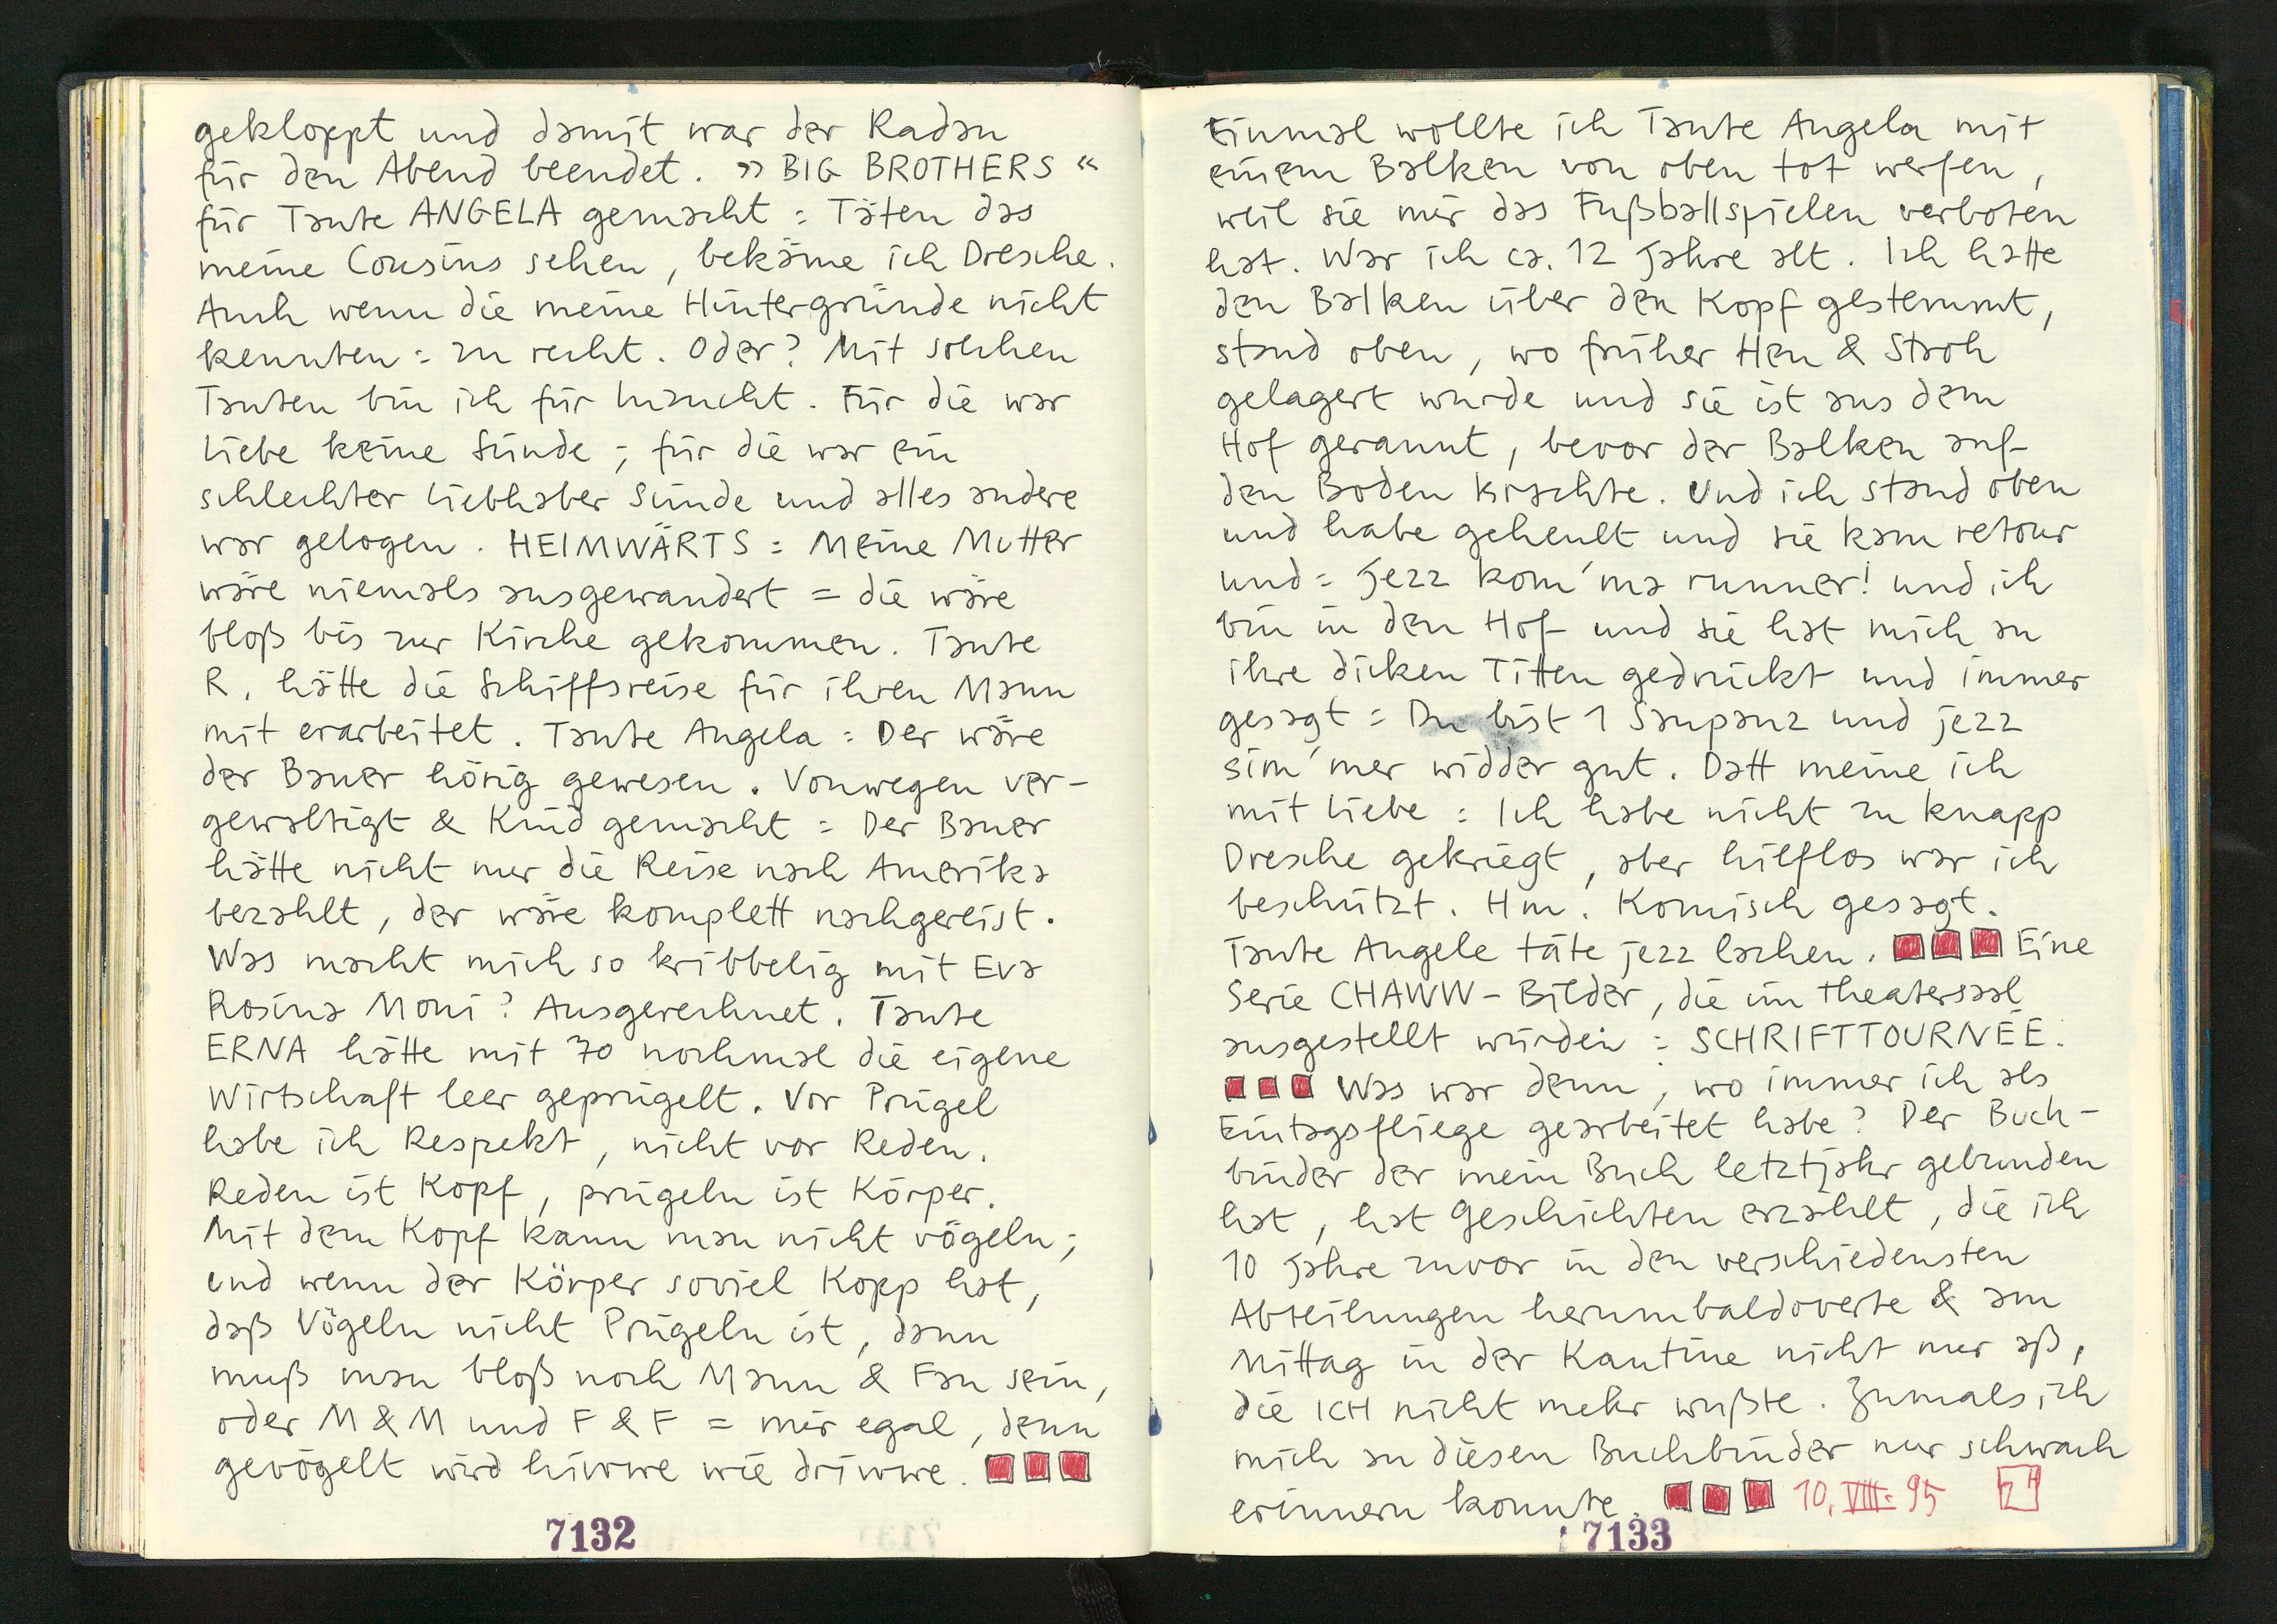 gekloppt und damit war der Radau
für den Abend beendet. »BIG BROTHERS«
für Tante ANGELA gemacht: Täten das
meine Cousins sehen, bekäme ich Dresche.
Auch wenn die meine Hintergründe nicht
kennten: zu recht. Oder? Mit solchen
Tanten bin ich für
Liebe keine Sünde; für die war ein
schlechter Liebhaber Sünde und alles andere
war gelogen. HEIMWÄRTS: Meine Mutter
wäre niemals ausgewandert = die wäre
bloß bis zur Kirche gekommen. Tante
R. hätte die Schiffsreise für ihren Mann
mit erarbeitet. Tante Angela: Der wäre
der Bauer hörig gewesen. Vonwegen ver-
gewaltigt & Kind gemacht: Der Bauer
hätte nicht nur die Reise nach Amerika
bezahlt, der wäre komplett nachgereist.
Was macht mich so kribbelig mit Eva
Rosina Moni? Ausgerechnet. Tante
ERNA hätte mit 70 nochmal die eigene
Wirtschaft leer geprügelt. Vor Prügel
habe ich Respekt, nicht vor Reden.
Reden ist Kopf, prügeln ist Körper.
Mit dem Kopf kann man nicht vögeln;
und wenn der Körper soviel Kopp hat,
daß Vögeln nicht Prügeln ist, dann
muß man bloß noch Mann & Fau sein,
oder M & M und F & F = mir egal, denn
gevögelt wird hiwwe wie driwwe.
7132
Einmal wollte ich Tante Angela mit
einem Balken von oben tot werfen,
weil sie mir das Fußballspielen verboten
hat. War ich ca. 12 Jahre alt. Ich hatte
den Balken über den Kopf gestemmt,
stand oben, wo früher Heu & Stroh
gelagert wurde und sie ist aus dem
Hof gerannt, bevor der Balken auf
den Boden krachte. Und ich stand oben
und habe geheult und sie kam retour
und: Jezz kom'ma runner! und ich
bin in den Hof und sie hat mich an
ihre dicken Titten gedrückt und immer
gesagt: Du bist 1 Saupanz und jezz
sim'mer widder gut. Datt meine ich
mit Liebe: Ich habe nicht zu knapp
Dresche gekriegt, aber hilflos war ich
beschützt. Hm. Komisch gesagt.
Tante Angele täte jezz lachen. Eine
Serie CHAWW-Bilder, die im Theatersaal
ausgestellt würden: SCHRIFTTOURNÉE.
Was war denn, wo immer ich als
Eintagsfliege gearbeitet habe? Der Buch-
binder der mein Buch letztjahr gebunden
hat, hat Geschichten erzählt, die ich
10 Jahre zuvor in den verschiedensten
Abteilungen herumbaldoverte & am
Mittag in der Kantine nicht nur aß,
die ICH nicht mehr wußte. Zumals ich
mich an diesen Buchbinder nur schwach
erinnern konnte. 10. VIII. 95
7133